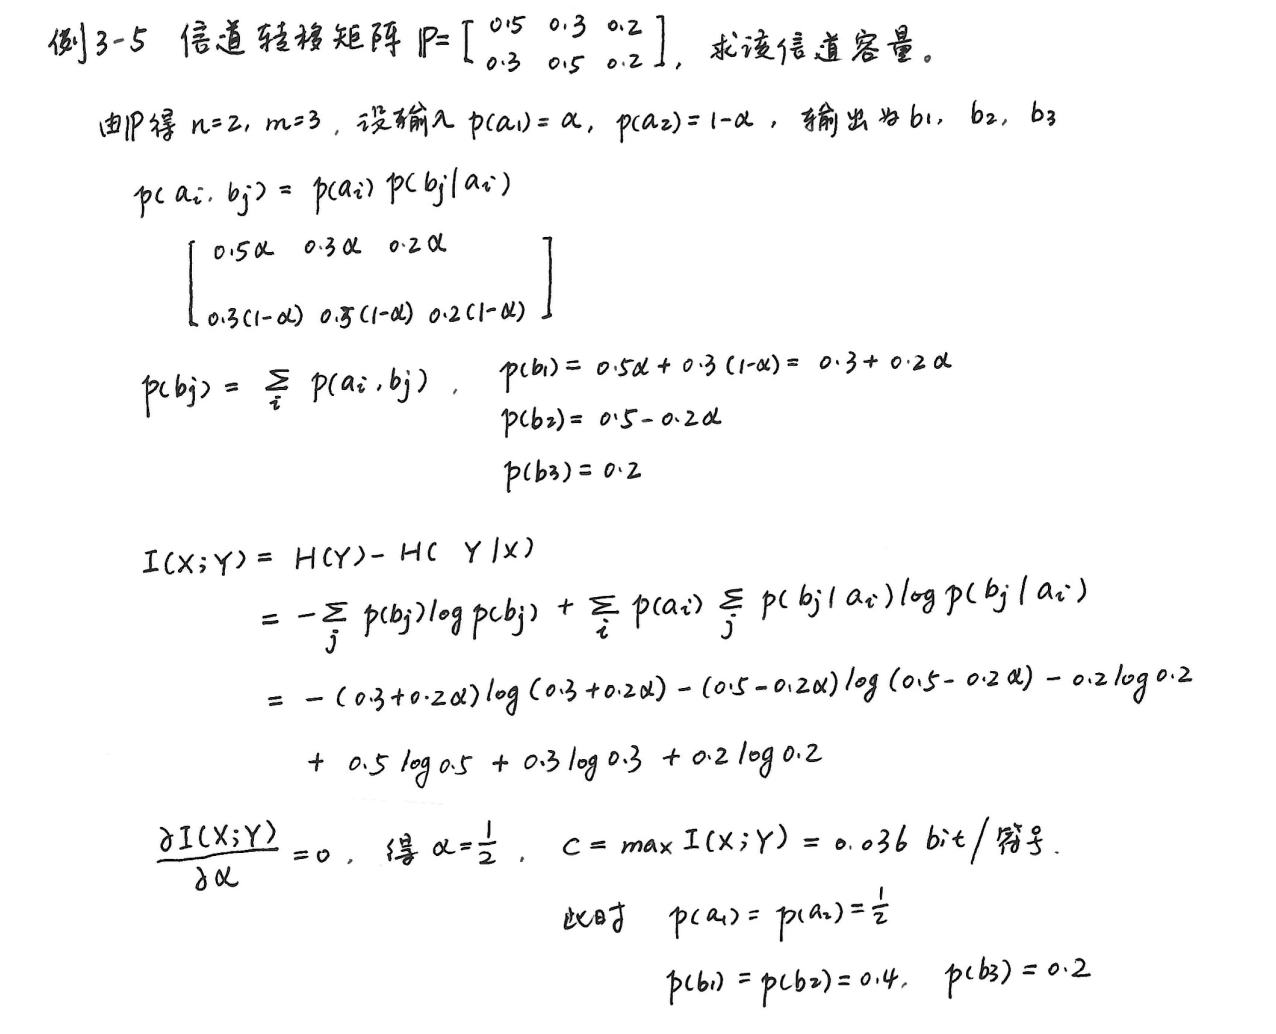 例3-5 信道转移矩阵 P=[0.5 0.3 0.2
0.3 0.5 0.2], 求该信道容量。
由P得 n=2, m=3, 设输入 p(a₁)=α, p(a₂)=1-α, 输出为 b₁, b₂, b₃
p(aᵢ, bⱼ) = p(aᵢ) p(bⱼ|aᵢ)
[0.5α 0.3α 0.2α
0.3(1-α) 0.5(1-α) 0.2(1-α)]
p(bⱼ) = Σᵢ p(aᵢ, bⱼ), p(b₁) = 0.5α + 0.3(1-α) = 0.3 + 0.2α
p(b₂) = 0.5 - 0.2α
p(b₃) = 0.2
I(X;Y) = H(Y) - H(Y|X)
= -Σⱼ p(bⱼ) log p(bⱼ) + Σᵢ p(aᵢ) Σⱼ p(bⱼ|aᵢ) log p(bⱼ|aᵢ)
= -(0.3+0.2α) log (0.3+0.2α) - (0.5-0.2α) log (0.5-0.2α) - 0.2 log 0.2
+ 0.5 log 0.5 + 0.3 log 0.3 + 0.2 log 0.2
∂I(X;Y)/∂α = 0, 得 α = 1/2, C = max I(X;Y) = 0.036 bit/符号.
此时 p(a₁) = p(a₂) = 1/2
p(b₁) = p(b₂) = 0.4, p(b₃) = 0.2